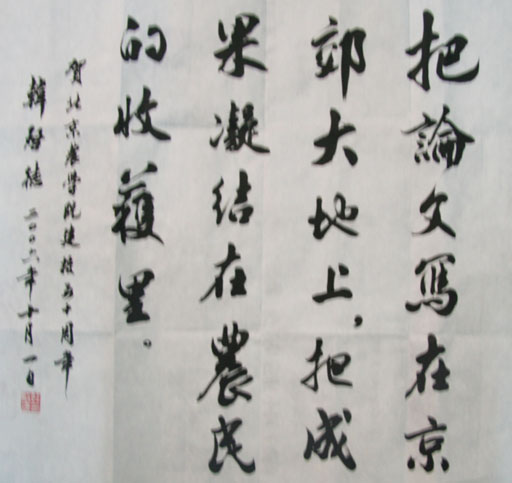 把論文寫在京
郊大地上，把成
果凝结在農民
的收穫里。
賀北京农学院建校五十周年
韓啓德 二〇〇六年十月一日